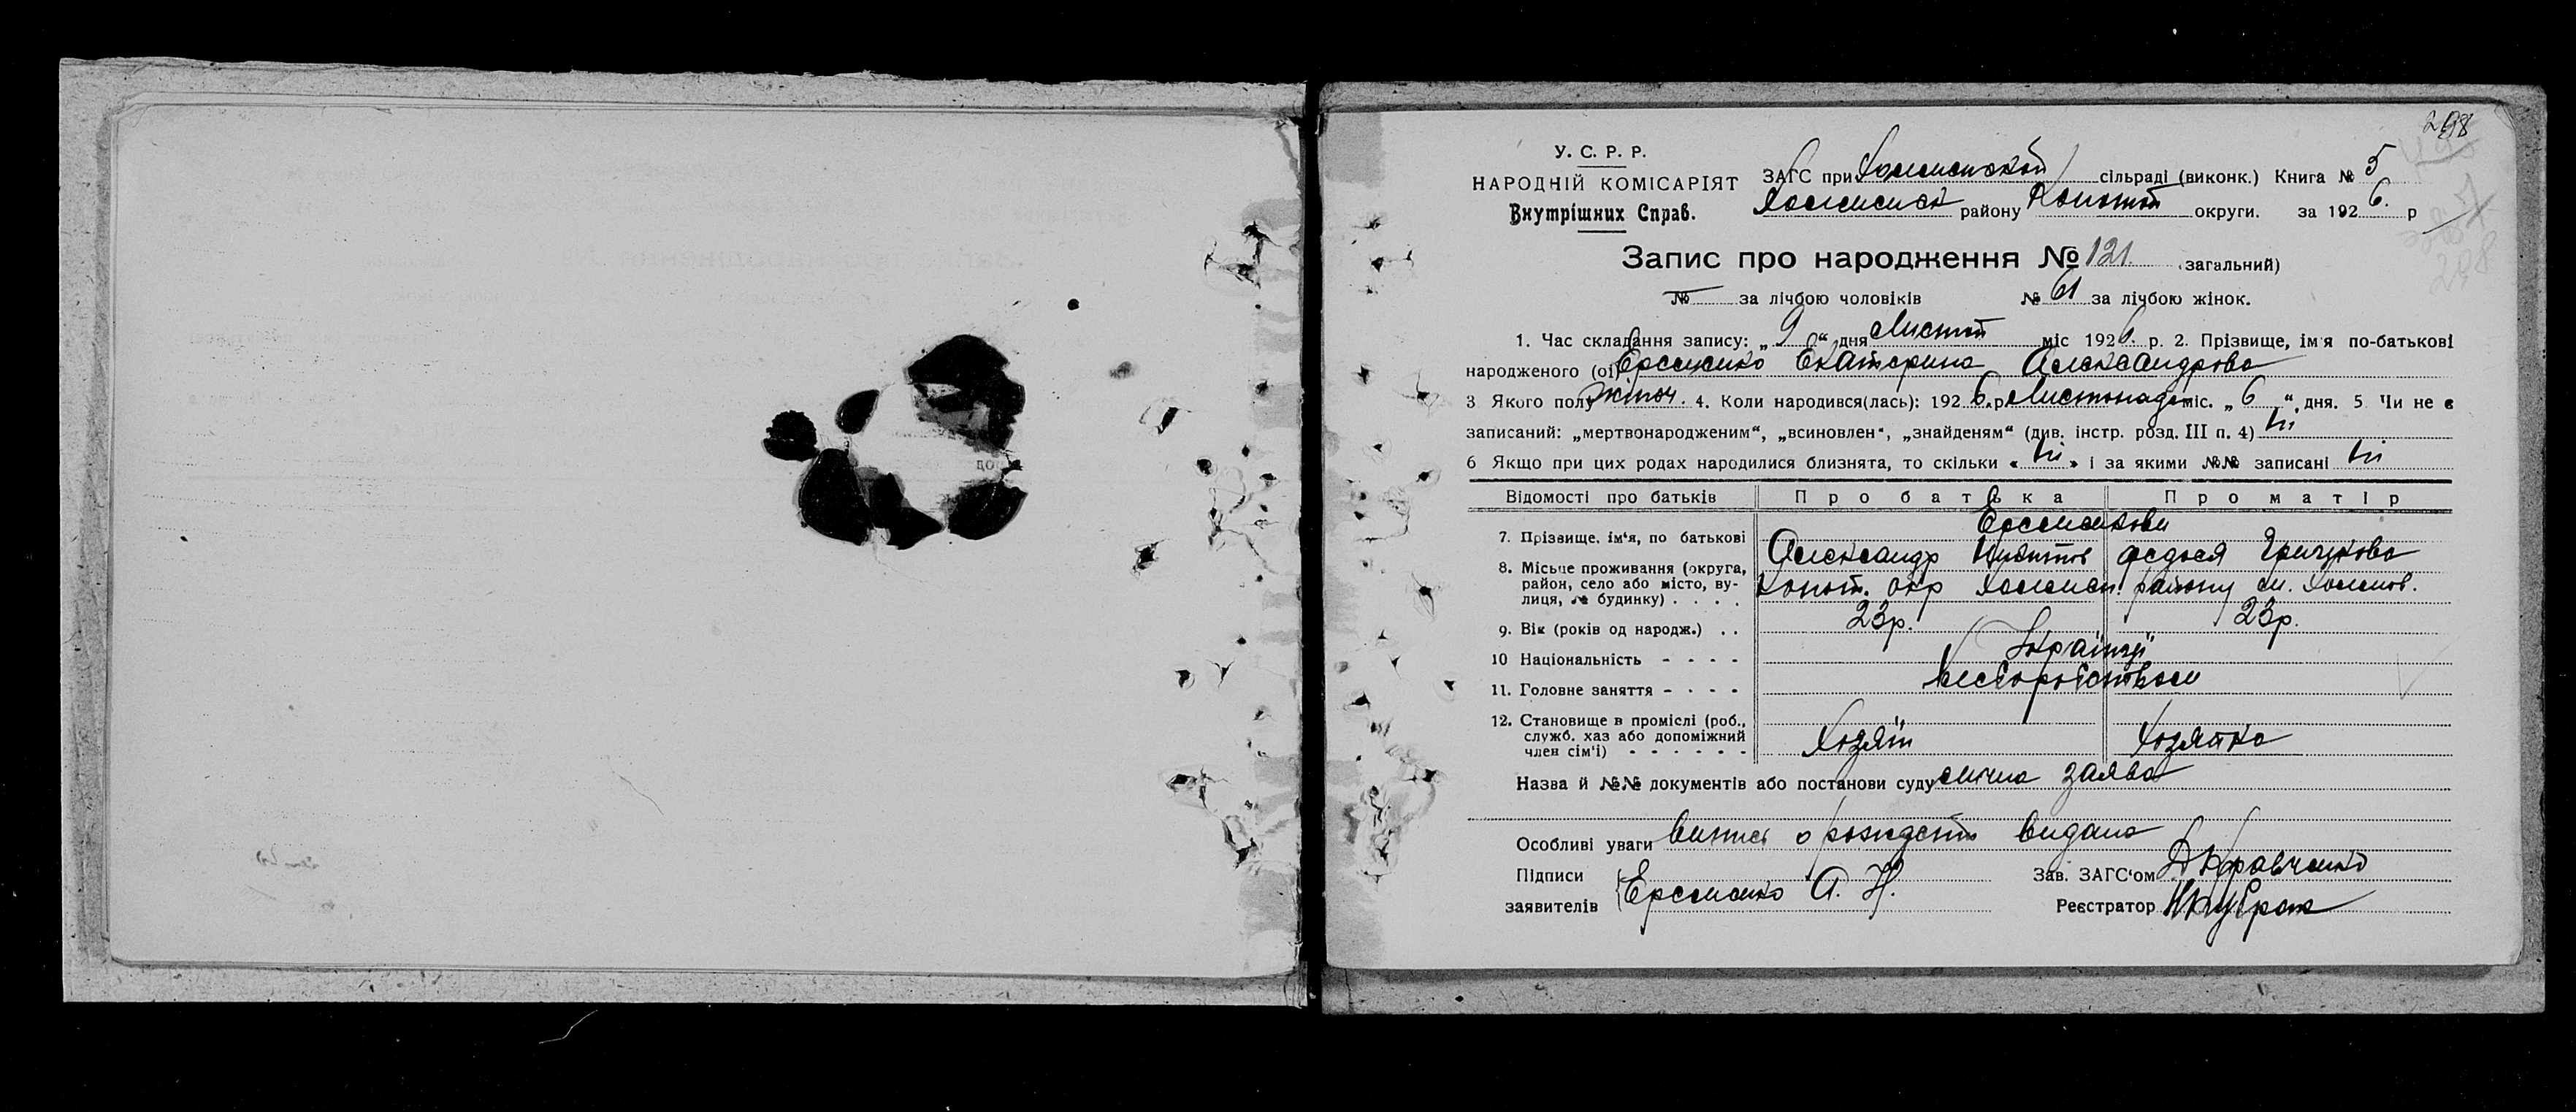 298
У. С. Р. Р.
НАРОДНІЙ КОМІСАРІЯТ
Внутрішних Справ.
ЗАГС при сільраді (виконк.) Книга № 5
району Конотоп округи. за 1926. р
Запис про народження № 121. (загальний)
№ за лічбою чоловіків № 61 за лічбою жінок.
1. Час складання запису: „ 9 “ дня Листоп міс 1926. р. 2. Прізвище, ім'я по-батькові
народженого (ої) Ерсменко Екатерина Александрова
3 Якого полу жіноч. 4. Коли народився(лась): 1926.р Листопада міс. „ 6 “ дня. 5 Чи не є
записаний: „мертвонародженим“, „всиновлен“, „знайденям“ (див. інстр. розд. III п. 4) Ні
6 Якщо при цих родах народилися близнята, то скільки « Ні » і за якими №№ записані Ні
Відомості про батьків Про батька Про матір
7. Прізвище, ім'я, по батькові
Александр Федося
8. Місьце проживання (округа,
район, село або місто, ву-
лиця, № будинку) . . . .
Конот. окр району
9. Вік (років од народж.) . . 23р. 23р.
10 Національність - - - - Українці
11. Головне заняття - - - - хліборобством
12. Становище в промислі (роб.,
служб. хаз або допоміжний
член сім'ї) - - - - - -
Хозяїн Хозяйка
Назва й №№ документів або постанови суду лична заява
Особливі уваги випись о рождении видана
Підписи
заявителів Ерсменко А. Н.
Зав. ЗАГС'ом Д Кравченко
Реєстратор